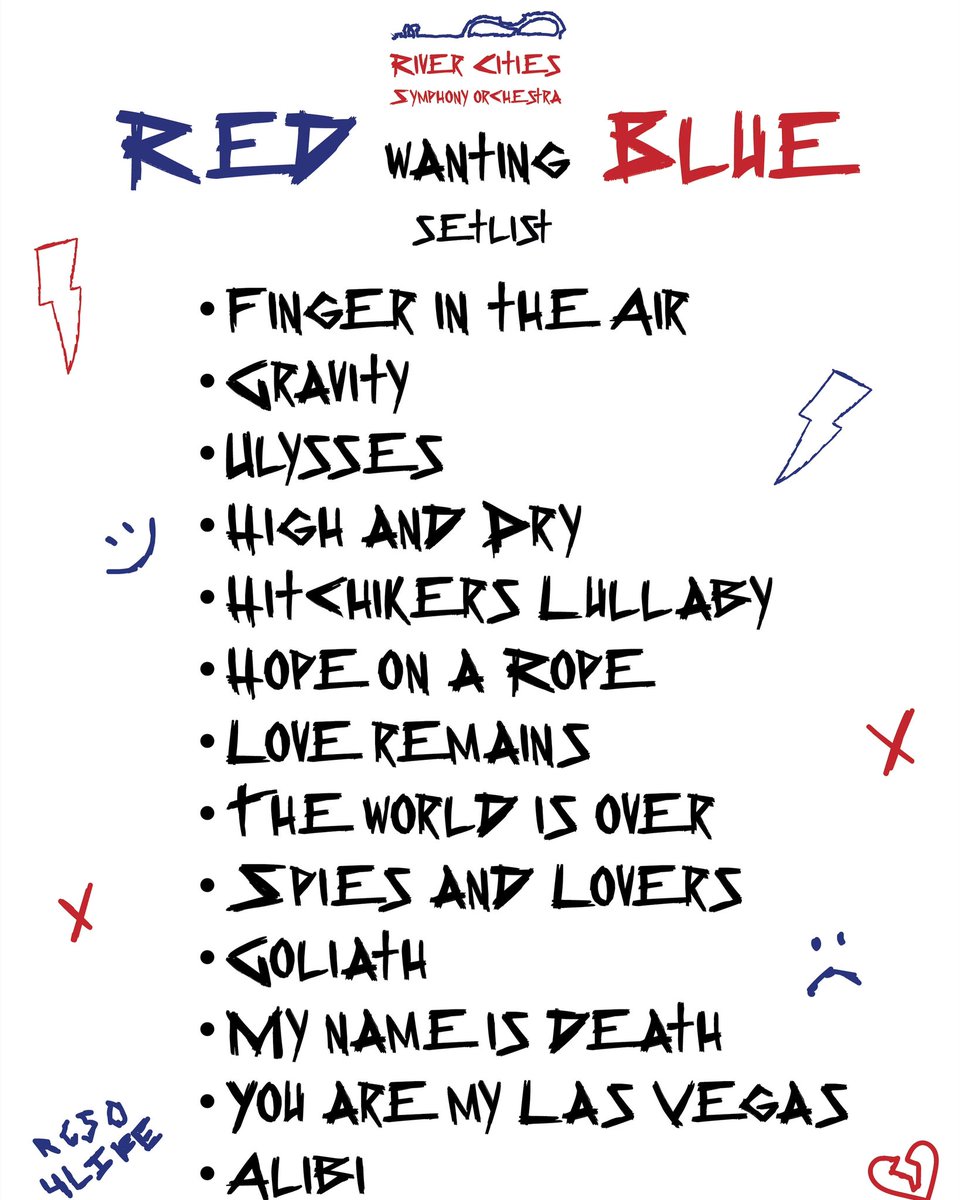 River Cities
Symphony Orchestra
RED wanting BLUE
setlist
• Finger in the Air
• Gravity
• Ulysses
• High and Dry
• Hitchikers Lullaby
• Hope on a Rope
• Love remains
• The world is over
• Spies and Lovers
• Goliath
• My name is Death
• You are my Las Vegas
• Alibi
RCSO
4LIFE